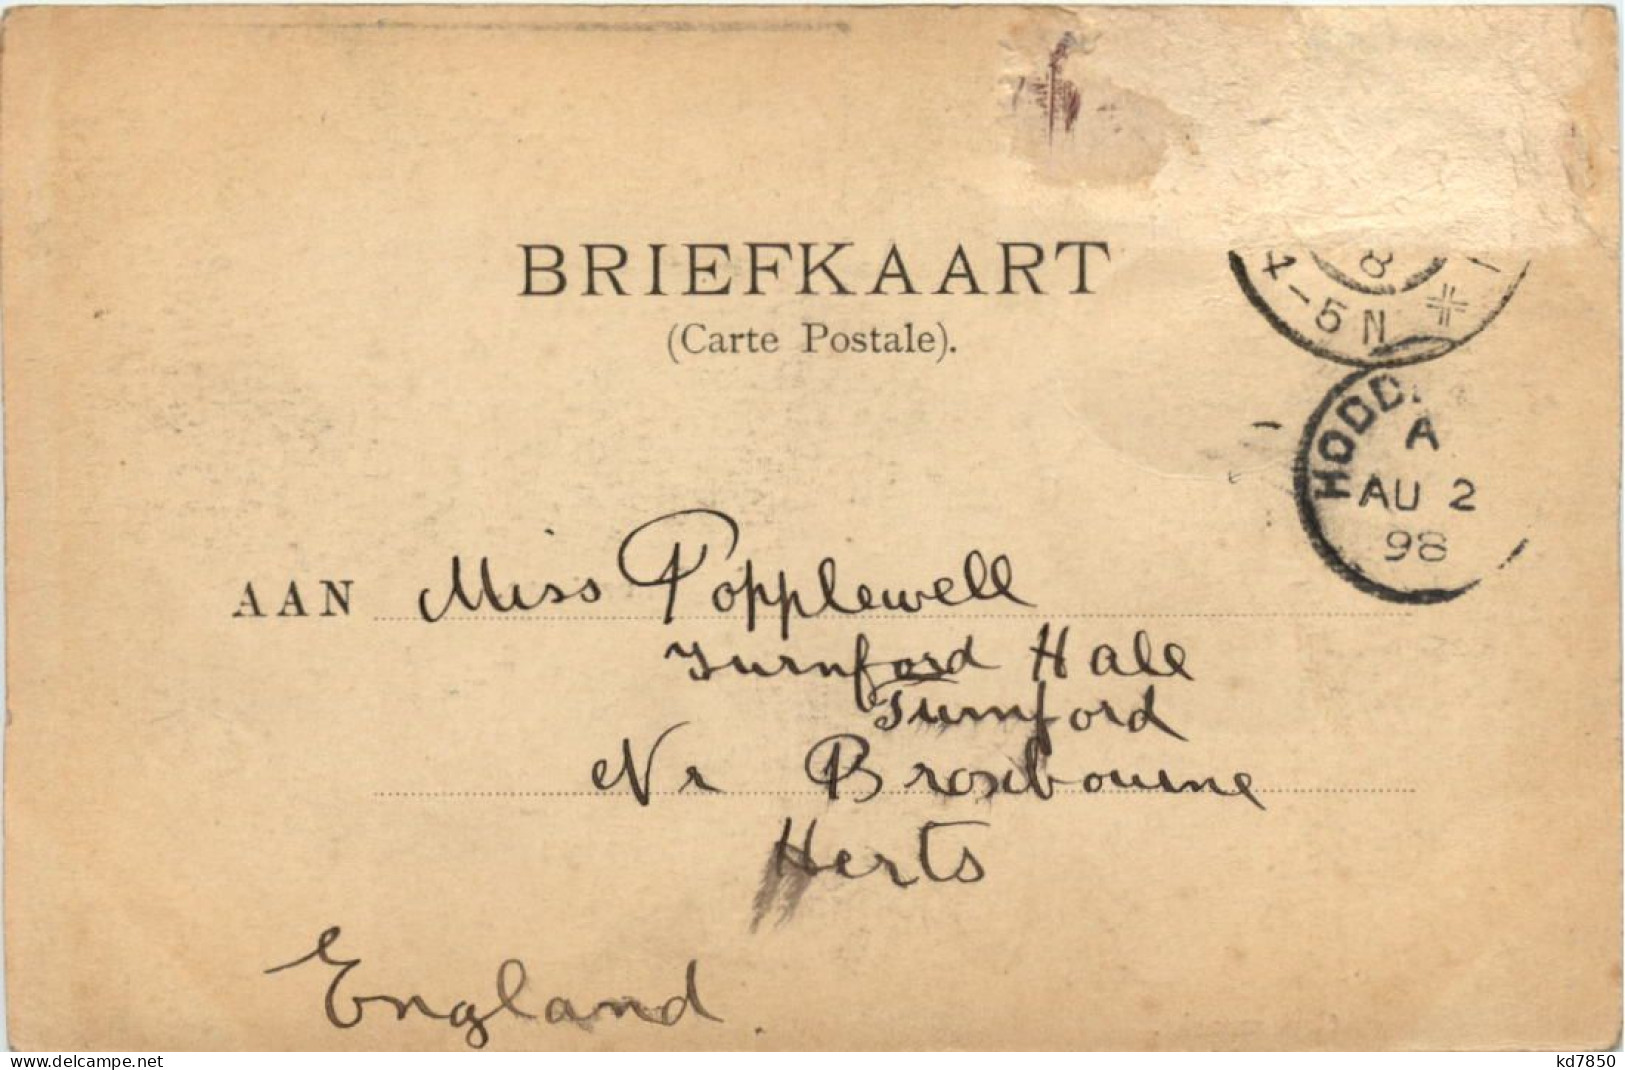 BRIEFKAART
(Carte Postale).
8
4-5N
HODD
A
AU 2
98
AAN Miss Popplewell
Turnford Hall
Turnford
Nr Broxbourne
Herts
England.
delcampe.net
kd7850